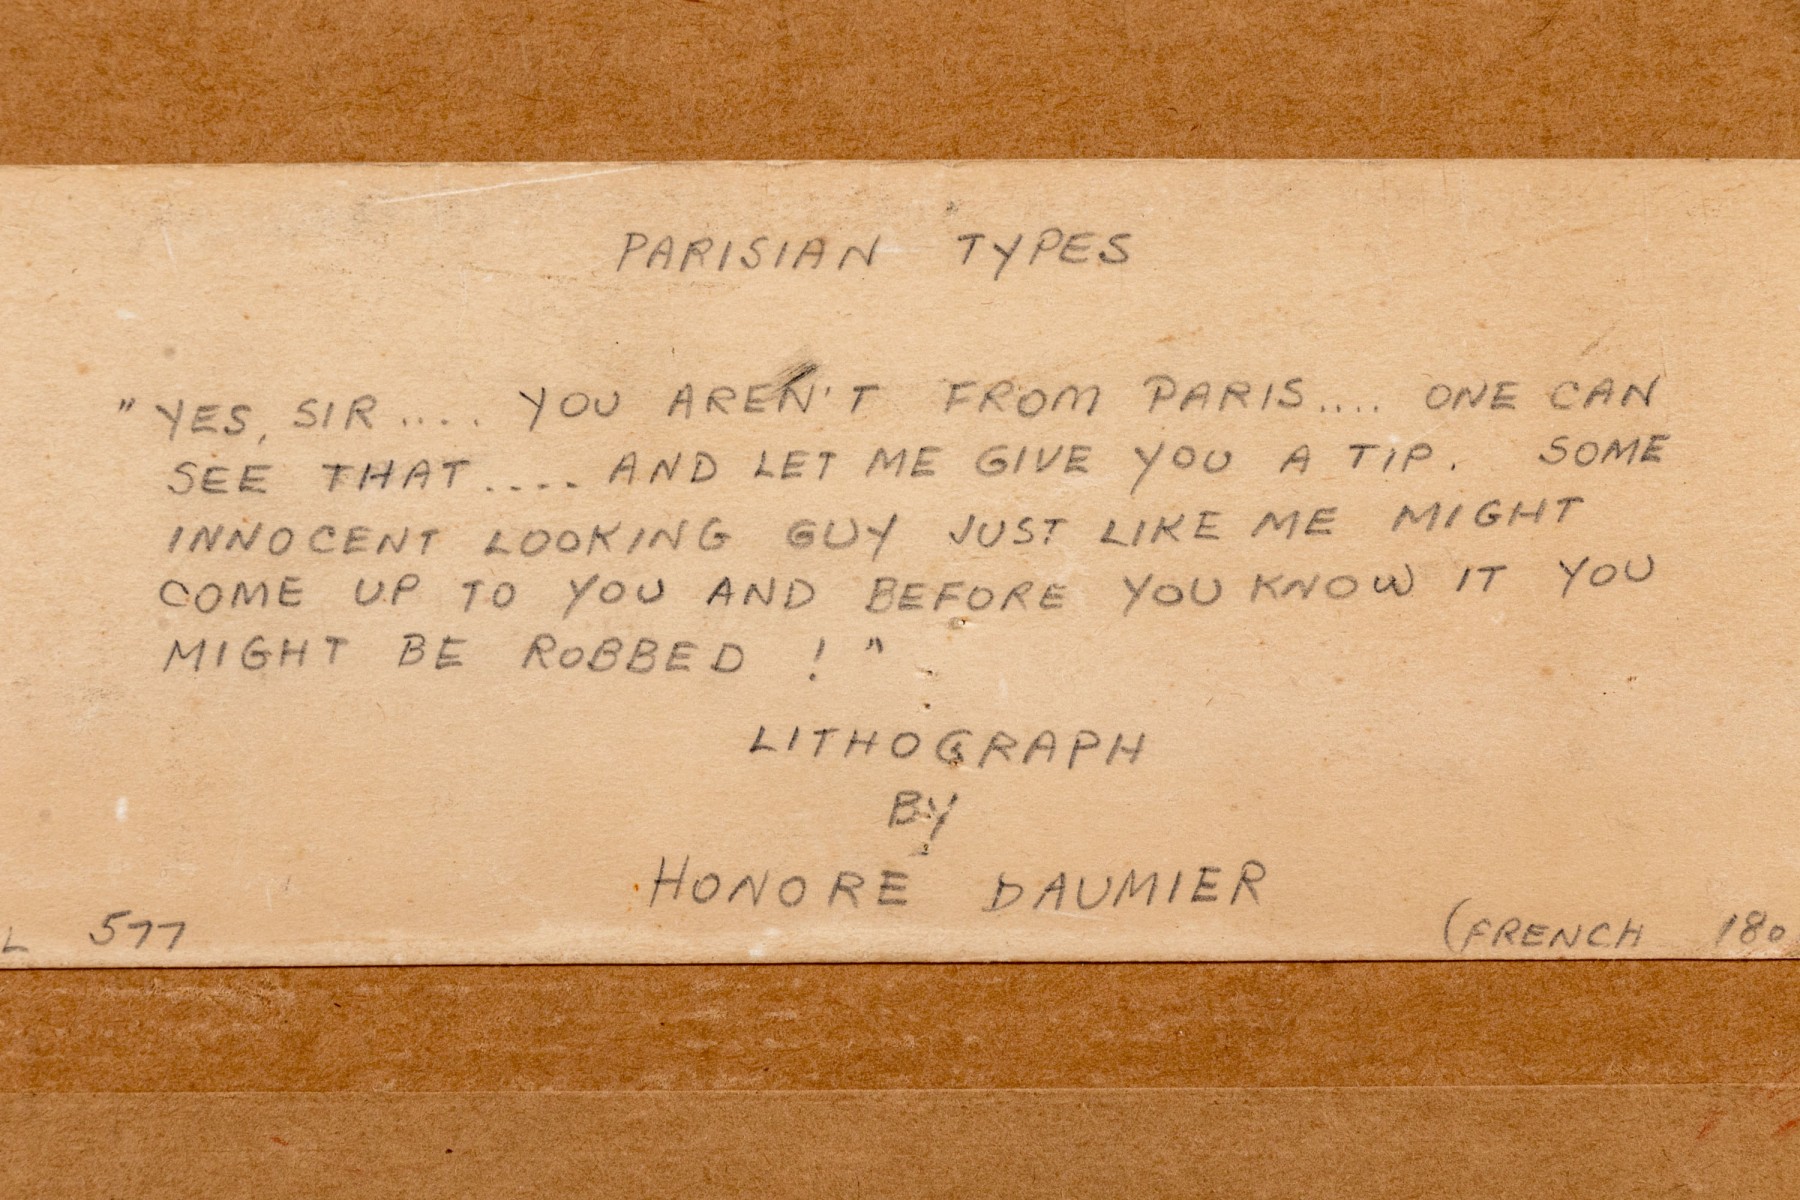 PARISIAN TYPES
"YES, SIR.... YOU AREN'T FROM PARIS.... ONE CAN
SEE THAT.... AND LET ME GIVE YOU A TIP. SOME
INNOCENT LOOKING GUY JUST LIKE ME MIGHT
COME UP TO YOU AND BEFORE YOU KNOW IT YOU
MIGHT BE ROBBED !"
LITHOGRAPH
BY
HONORE DAUMIER
L 577
(FRENCH 180